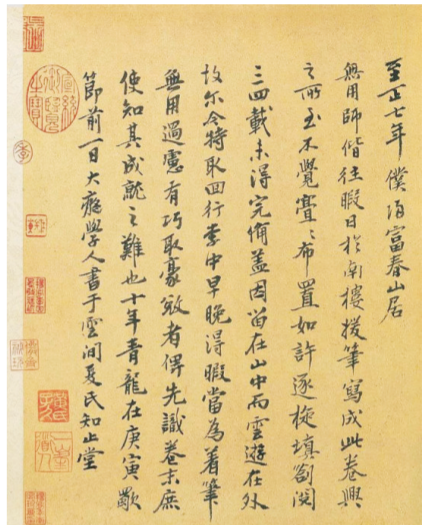 至正七年僕歸富春山居
無用師偕往暇日於南樓援筆寫成此卷興
之所至不覺亹〻布置如許逐旋填劄閱
三四載未得完備盖因留在山中而雲遊在外
故尔今特取回行李中早晚得暇當為着筆
無用過慮有巧取豪敓者俾先識卷末庶
使知其成就之難也十年青龍在庚寅歜
節前一日大癡學人書于雲間夏氏知止堂